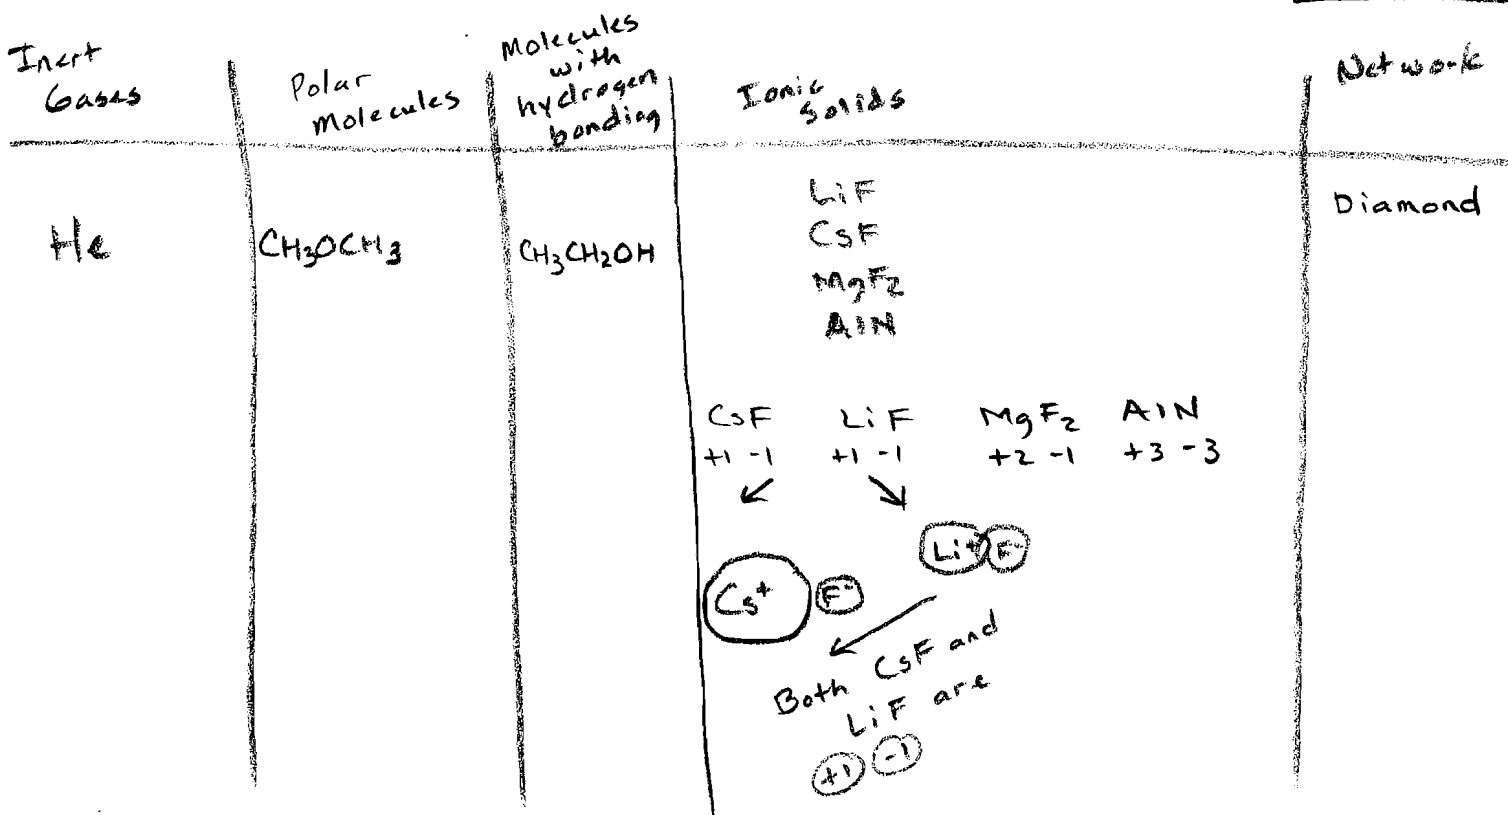 Inert
Gases
Polar
Molecules
Molecules
with
hydrogen
bonding
Ionic
Solids
Network
He
CH3OCH3
CH3CH2OH
LiF
CsF
MgF2
AlN
Diamond
CsF LiF MgF2 AlN
+1 -1 +1 -1 +2 -1 +3 -3
Li+ F-
Cs+ F-
Both CsF and
LiF are
+1 -1